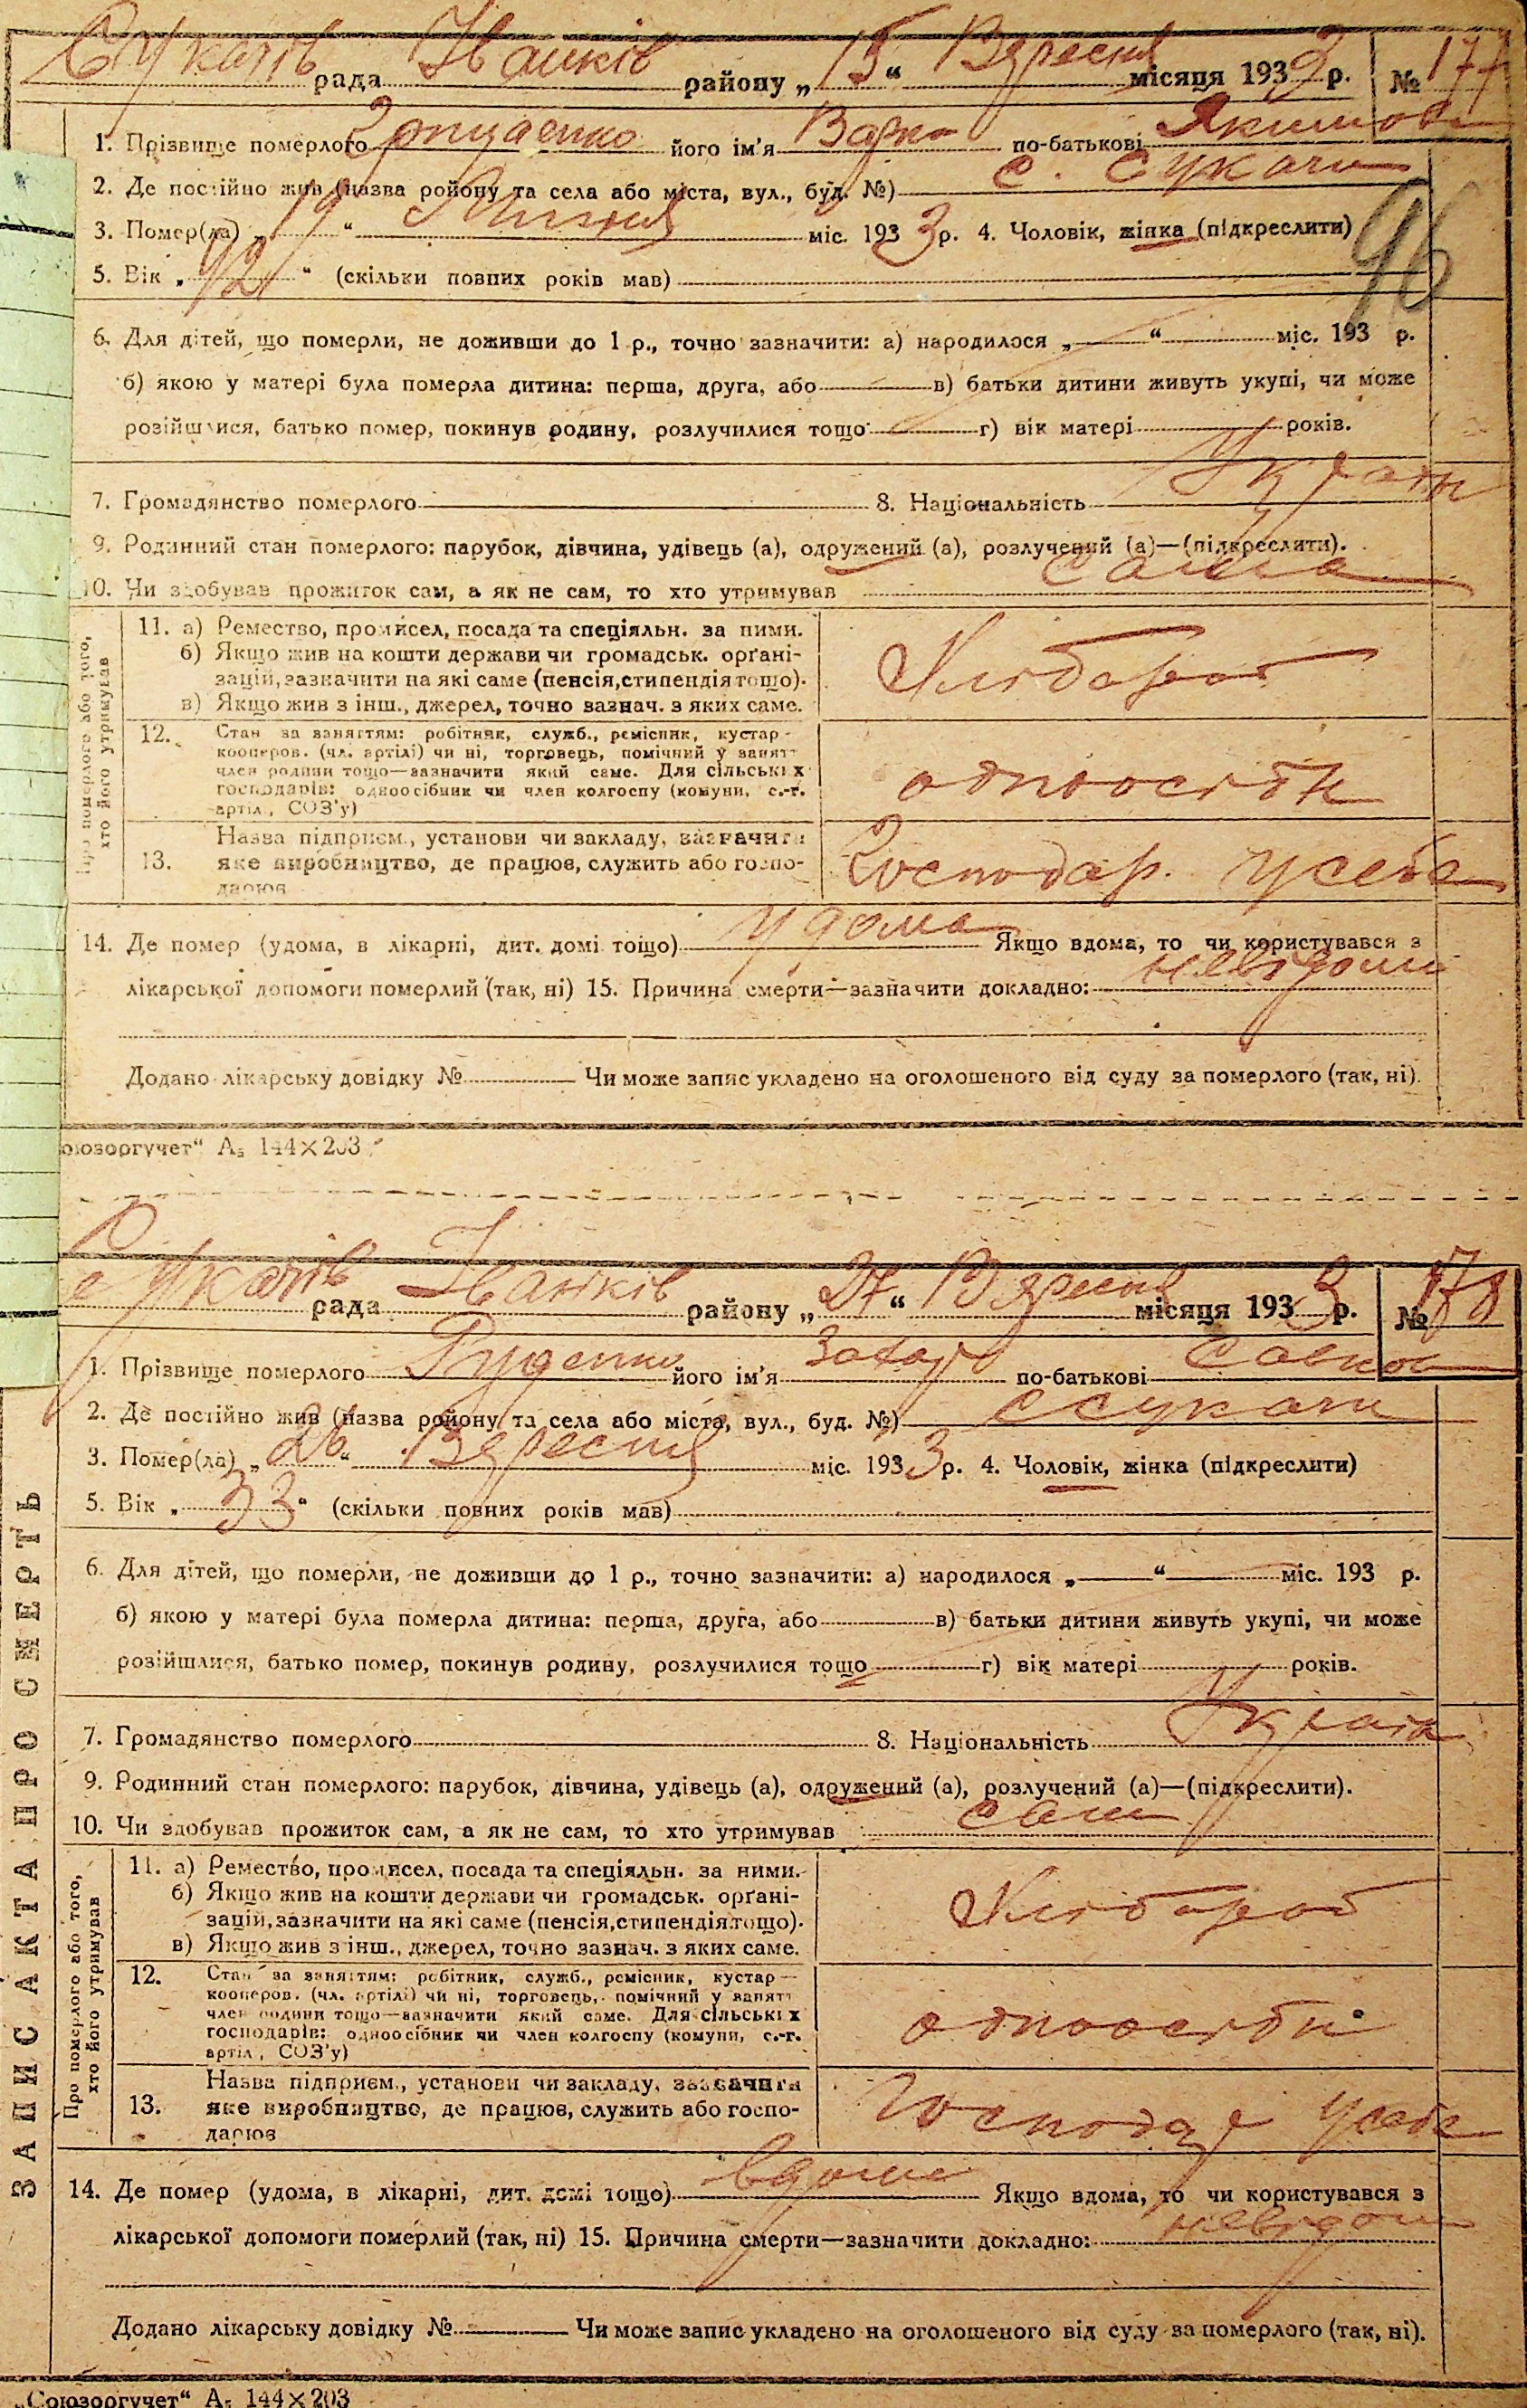 Сукачів рада Іванків району „ 15 “ Вересня місяця 193 р. № 177
1. Прізвище померлого його ім'я Варка по-батькові Якимовн
2. Де постійно жив (назва ройону та села або міста, вул., буд. №) с. Сукачі
3. Помер(ла) „ “ міс. 193 3 р. 4. Чоловік, жінка (підкреслити)
96
5. Вік „ “ (скільки повних років мав)
6. Для дітей, що померли, не доживши до 1 р., точно зазначити: а) народилося „ “ міс. 193 р.
б) якою у матері була померла дитина: перша, друга, або в) батьки дитини живуть укупі, чи може
розійшлися, батько помер, покинув родину, розлучилися тощо г) вік матері років.
7. Громадянство померлого 8. Національність Україн
9. Родинний стан померлого: парубок, дівчина, удівець (а), одружений (а), розлучений (а)—(підкреслити).
10. Чи здобував прожиток сам, а як не сам, то хто утримував сама
Про померлого або того,
хто його утримував
11. а) Ремество, промисел, посада та спеціяльн. за ними.
б) Якщо жив на кошти держави чи громадськ. орґані-
зацій, зазначити на які саме (пенсія, стипендія тощо).
в) Якщо жив з інш., джерел, точно зазнач. з яких саме.
Хлібороб
12. Стан за заняттям: робітник, служб., ремісник, кустар-
кооперов. (чл. артілі) чи ні, торговець, помічний у занятт
член родини тощо—зазначити який саме. Для сільських
господарів: одноосібник чи член колгоспу (комуни, с.-г.
артіл., СОЗ'у)
одноосібн
13. Назва підприєм., установи чи закладу, зазначити
яке виробництво, де працює, служить або госпо-
дарює
Господар. усебе
14. Де помер (удома, в лікарні, дит. домі тощо) удома Якщо вдома, то чи користувався з
лікарської допомоги померлий (так, ні) 15. Причина смерти—зазначити докладно: невідома
Додано лікарську довідку № Чи може запис укладено на оголошеного від суду за померлого (так, ні).
оюзоргучет“ А₅ 144×203
Сукачів рада Іванків району „ 27 “ Вересня місяця 193 3 р. № 178
1. Прізвище померлого Руденко його ім'я Захар по-батькові Савков
2. Де постійно жив (назва ройону та села або міста, вул., буд. №) с Сукачі
3. Помер(ла) „ 26 “ Вересня міс. 193 3 р. 4. Чоловік, жінка (підкреслити)
5. Вік „ 33 “ (скільки повних років мав)
6. Для дітей, що померли, не доживши до 1 р., точно зазначити: а) народилося „ “ міс. 193 р.
б) якою у матері була померла дитина: перша, друга, або в) батьки дитини живуть укупі, чи може
розійшлися, батько помер, покинув родину, розлучилися тощо г) вік матері років.
7. Громадянство померлого 8. Національність Україн
9. Родинний стан померлого: парубок, дівчина, удівець (а), одружений (а), розлучений (а)—(підкреслити).
10. Чи здобував прожиток сам, а як не сам, то хто утримував сам
ЗАПИС АКТА ПРО СМЕРТЬ
Про померлого або того,
хто його утримував
11. а) Ремество, промисел, посада та спеціяльн. за ними.
б) Якщо жив на кошти держави чи громадськ. орґані-
зацій, зазначити на які саме (пенсія, стипендія тощо).
в) Якщо жив з інш., джерел, точно зазнач. з яких саме.
Хлібороб
12. Стан за заняттям: робітник, служб., ремісник, кустар—
кооперов. (чл. артілі) чи ні, торговець, помічний у занятт
член родини тощо—зазначити який саме. Для сільських
господарів: одноосібник чи член колгоспу (комуни, с.-г.
артіл., СОЗ'у)
одноосібн
13. Назва підприєм., установи чи закладу, зазначити
яке виробництво, де працює, служить або госпо-
дарює
Господар усебе
14. Де помер (удома, в лікарні, дит. домі тощо) вдома Якщо вдома, то чи користувався з
лікарської допомоги померлий (так, ні) 15. Причина смерти—зазначити докладно: невідома
Додано лікарську довідку № Чи може запис укладено на оголошеного від суду за померлого (так, ні).
„Союзоргучет“ А₅ 144×203